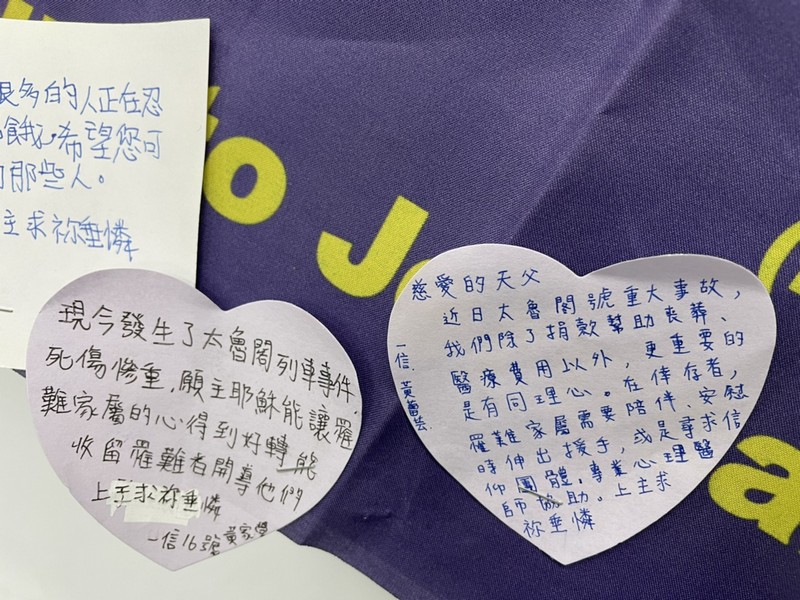 很多的人正在忍
餓,希望您可
那些人。
主求祢垂憐
to Je
a
現今發生了太魯閣列車事件,
死傷慘重,願主耶穌能讓罹
難家屬的心得到好轉,能
收留罹難者開導他們
上主求祢垂憐
一信16號 黃家瑩
慈愛的天父
近日太魯閣號重大事故,
我們除了捐款幫助喪葬、
醫療費用以外,更重要的
是有同理心。在倖存者,
罹難家屬需要陪伴、安慰
時伸出援手,或是尋求信
仰團體、專業心理醫
師協助。上主求
祢垂憐
一信 黃